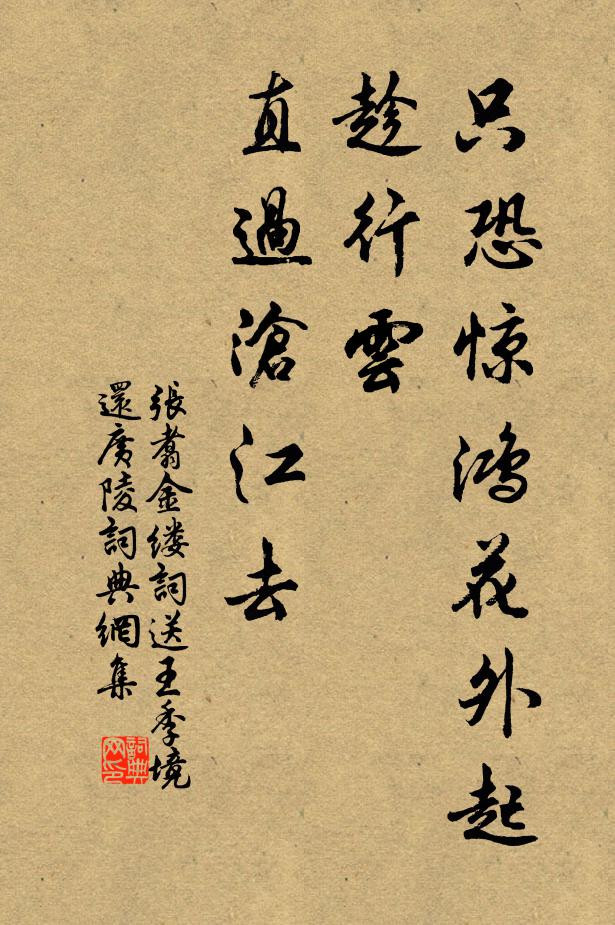 只恐惊鸿花外起
趁行雲
直過滄江去
張翥金缕詞送王季境
還廣陵詞典網集
詞典
网印